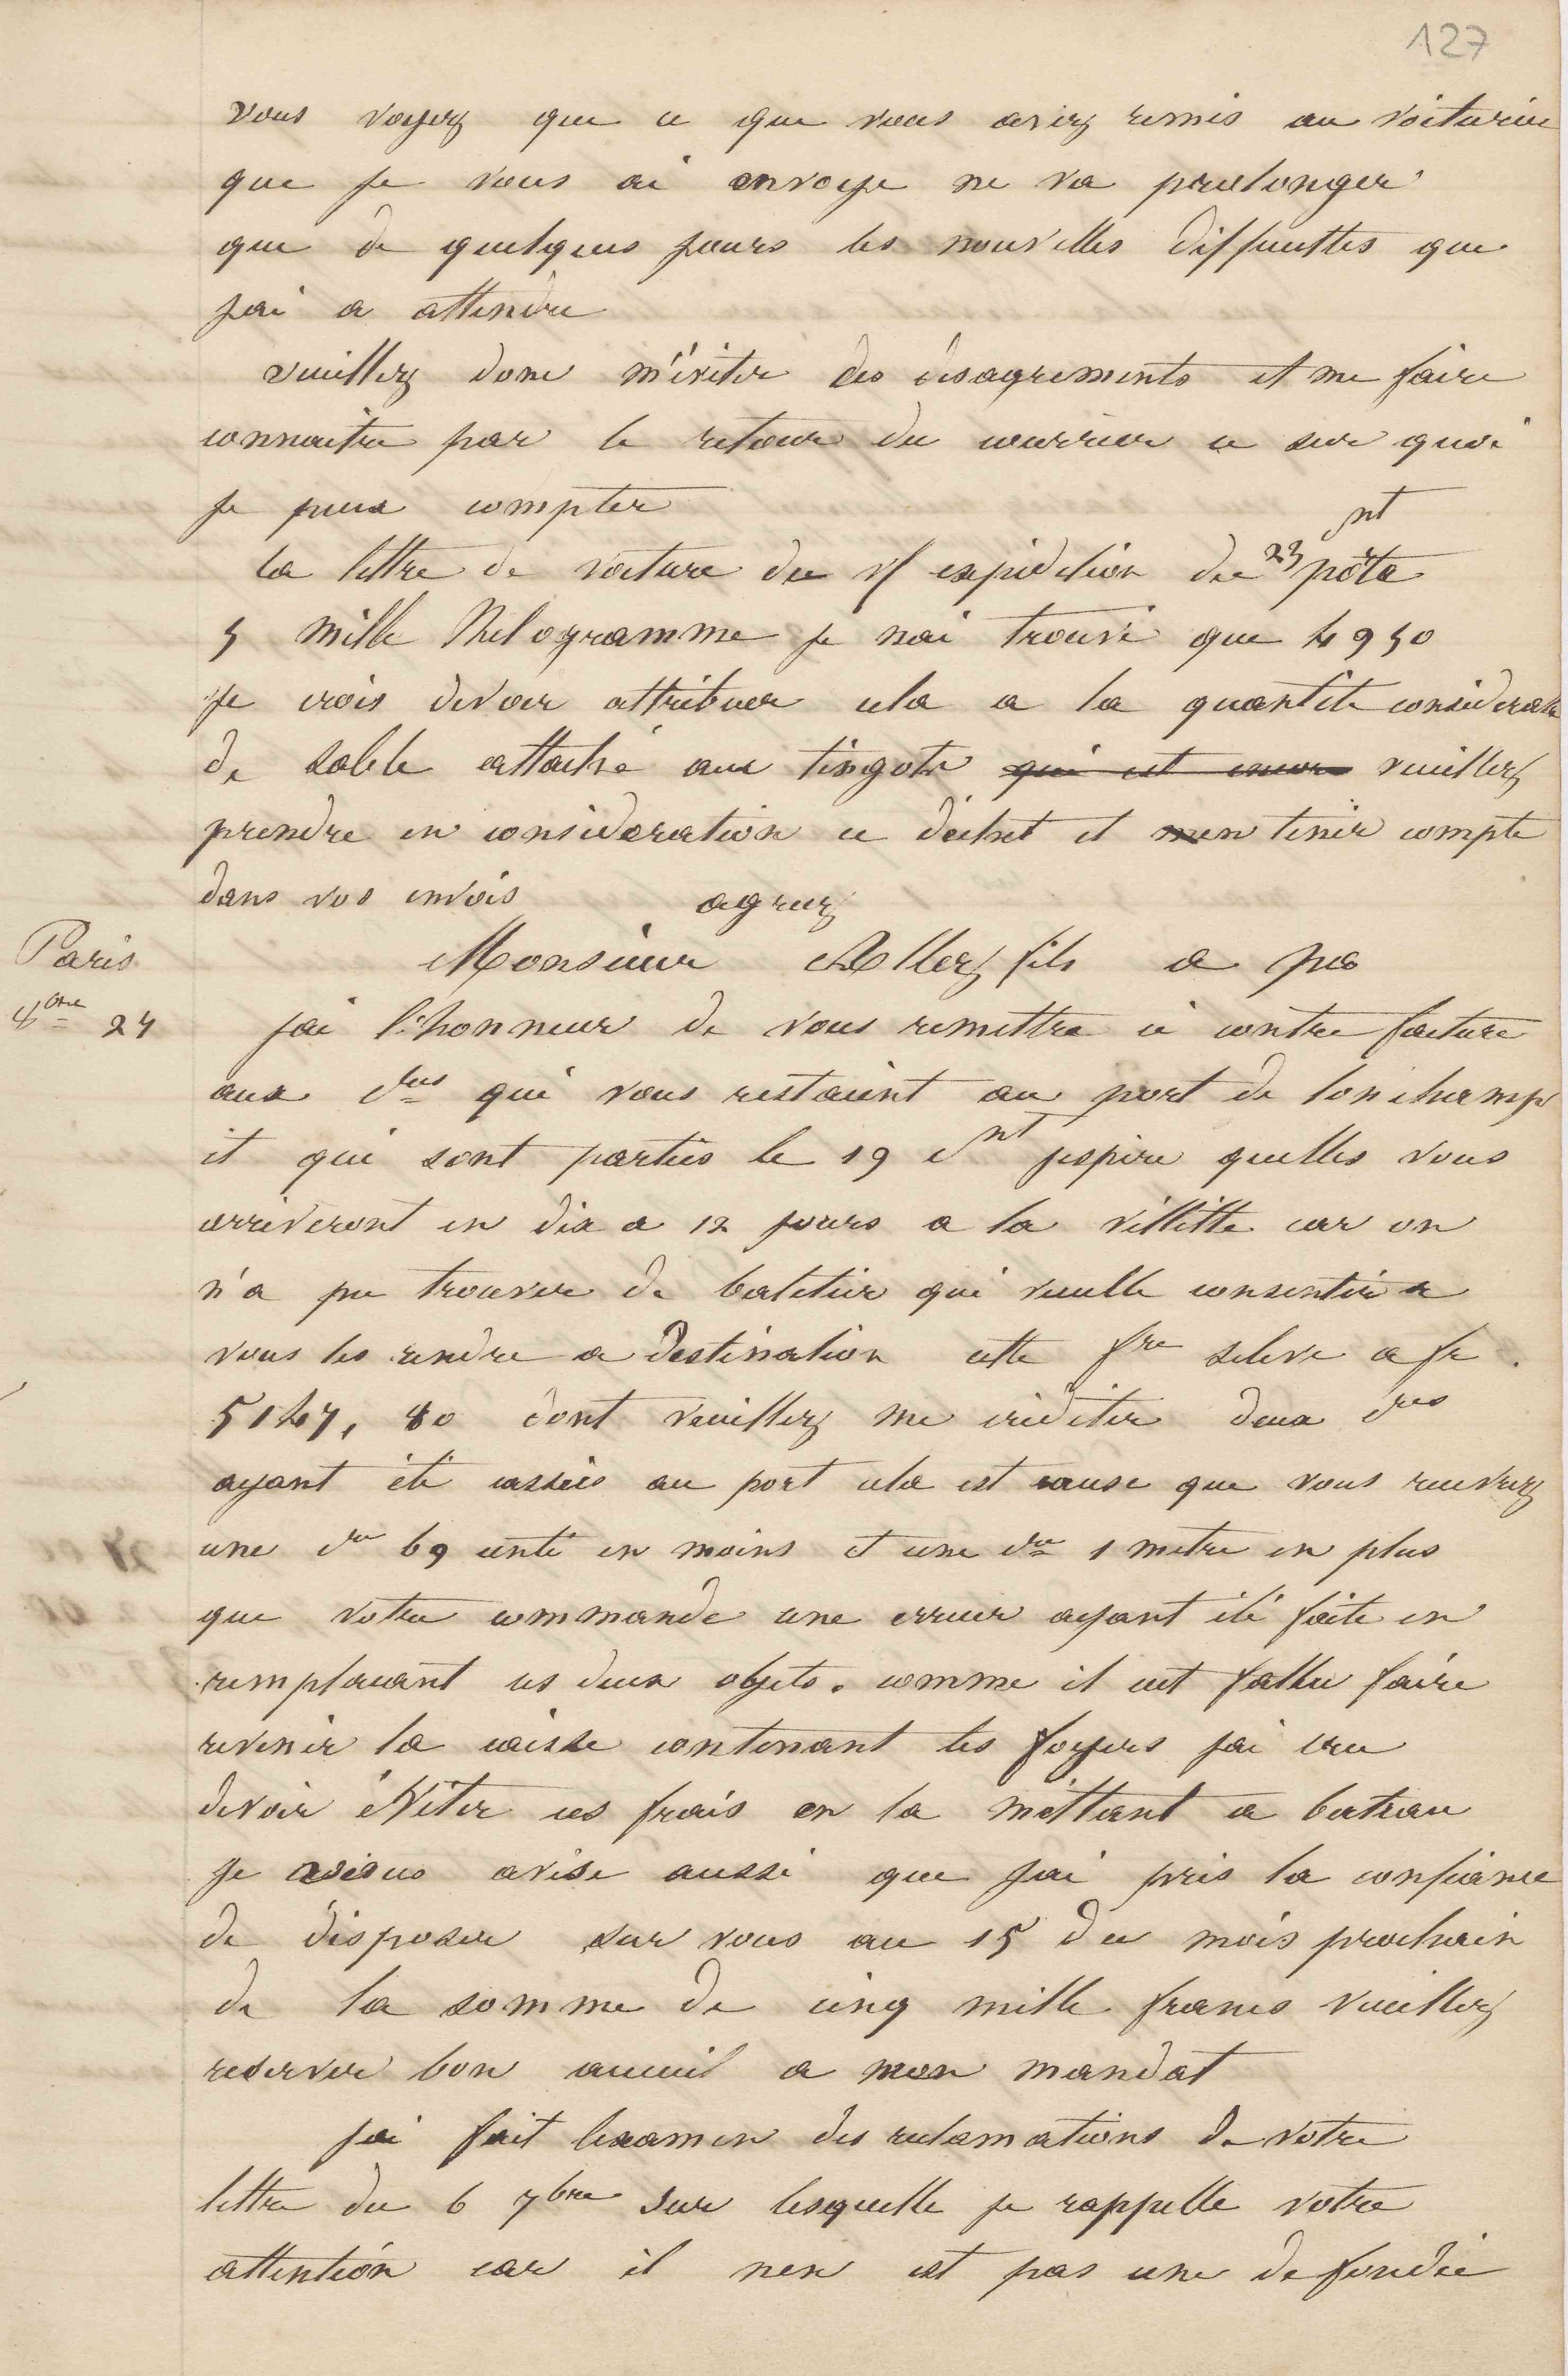 127
vous voyez que ce que vous aviez remis au voiturier
que je vous ai envoye ne va prolonger
que de quelques jours les nouvelles diffucttes que
jai a attendre
veuillez donc m'éviter des désagrements et me faire
connaitre par le retour du courrier ce sur quoi
je puis compter
la lettre de voiture de v/ expidition du 23 pnt porte
5 mille Kilogramme je nai trouvé que 4950
je crois devoir attribuer cela a la quantité considerable
de sable attaché aux lingots qui est encore veuillez
prendre en consideration ce déchet et men tenir compte
dans vos envois agreez
Paris Monsieur Allez fils a Paris
8bre 24 jai l'honneur de vous remettre ci contre facture
aux cnes qui vous restaient au port de lonchamp
et qui sont parties le 19 cnt jespere quelles vous
arriveront en dix a 12 jours a la villette car on
n'a pu trouver de batelier qui veuille consentir a
vous les rendre a Destination cette fre seleve a fr
5147, 80 dont veuillez me créditer deux cnes
ayant été cassées au port cela est cause que vous recevrez
une cne 69 centi en moins et une cne 1 metre en plus
que votre commande une erreur ayant été faite en
remplacant ces deux objets. comme il eut fallu faire
revenir la caisse contenant les foyers jai cru
devoir éviter ces frais en la mettant a bateau
je vous avise aussi que jai pris la confiance
de disposer sur vous au 15 du mois prochain
de la somme de cinq mille francs veuillez
reserver bon acceuil a mon mandat
jai fait lexamen des reclamations de votre
lettre du 6 7bre sur lesquelle je rappelle votre
attention car il nen est pas une de fondée